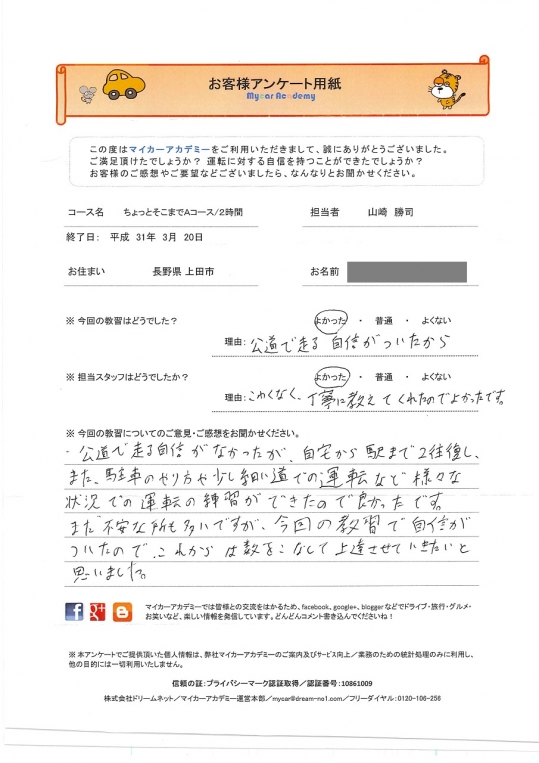 お客様アンケート用紙
Mycar Academy
この度はマイカーアカデミーをご利用いただきまして、誠にありがとうございました。
ご満足頂けたでしょうか？ 運転に対する自信を持つことができたでしょうか？
お客様のご感想やご要望などございましたら、なんなりとお聞かせください。
コース名 ちょっとそこまでAコース/2時間 担当者 山崎 勝司
終了日： 平成 31年 3月 20日
お住まい 長野県 上田市 お名前
※ 今回の教習はどうでした？ よかった ・ 普通 ・ よくない
理由：公道で走る自信がついたから
※ 担当スタッフはどうでしたか？ よかった ・ 普通 ・ よくない
理由：こわくなく、丁寧に教えてくれたのでよかったです。
※ 今回の教習についてのご意見・ご感想をお聞かせください。
・公道で走る自信がなかったが、自宅から駅まで2往復し、
また、駐車のやり方や少し細い道での運転など様々な
状況での運転の練習ができたので良かったです。
まだ不安な所も多いですが、今回の教習で自信が
ついたので、これからは数をこなして上達させていきたいと
思いました。
マイカーアカデミーでは皆様との交流をはかるため、facebook、google+、blogger などでドライブ・旅行・グルメ・
お笑いなど、楽しい情報を発信しています。どんどんコメント書き込んでくださいね！
※ 本アンケートでご提供頂いた個人情報は、弊社マイカーアカデミーのご案内及びサービス向上／業務のための統計処理のみに利用し、
他の目的には一切利用いたしません。
信頼の証：プライバシーマーク認証取得／認証番号：10861009
株式会社ドリームネット／マイカーアカデミー運営本部／mycar@dream-no1.com／フリーダイヤル：0120-106-256